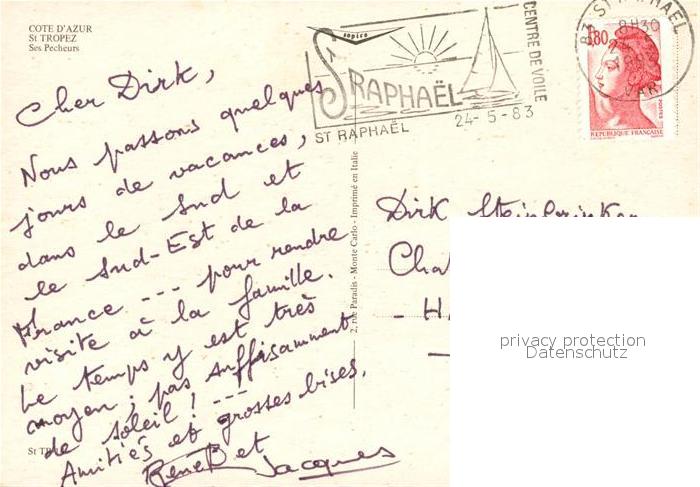 COTE D'AZUR
St TROPEZ
Ses Pecheurs
Cher Dirk,
Nous passons quelques
jours de vacances,
dans le Sud et
le Sud-Est de la
France --- pour rendre
visite à la famille.
Le temps y est très
moyen ; pas suffisamment
de soleil ! ---
Amitiés et grosses bises.
René et
Jacques
St T
2, rue Paradis - Monte Carlo - Imprimé en Italie
sopico
ST RAPHAËL
CENTRE DE VOILE
ST RAPHAËL
24-5-83
83 ST RAPHAËL
8H30
VAR
1,80
POSTES
REPUBLIQUE FRANÇAISE
Dirk
Cha
- H
privacy protection
Datenschutz